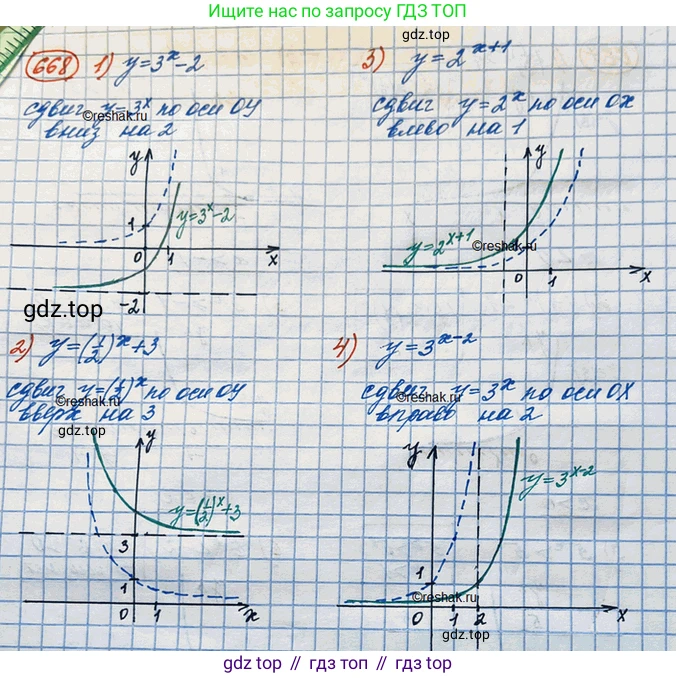 Ищите по запросу ГДЗ ТОП
gdz.top
668 1) y=3^x-2
сдвиг y=3^x по оси OY
вниз на 2
©reshak.ru
y
1
y=3^x-2
0 1 x
-2
gdz.top
3) y=2^x+1
сдвиг y=2^x по оси OX
влево на 1
y
y=2^x+1
©reshak.ru
0 1 x
2) y=(1/2)^x+3
сдвиг y=(1/2)^x по оси OY
©reshak.ru
вверх на 3
gdz.top
y
y=(1/2)^x+3
3
1
0 1 x
4) y=3^x-2
сдвиг y=3^x по оси OX
©reshak.ru
вправо на 2
y
y=3^x-2
1
©reshak.ru
0 1 2 x
gdz.top
gdz.top // гдз топ // gdz.top